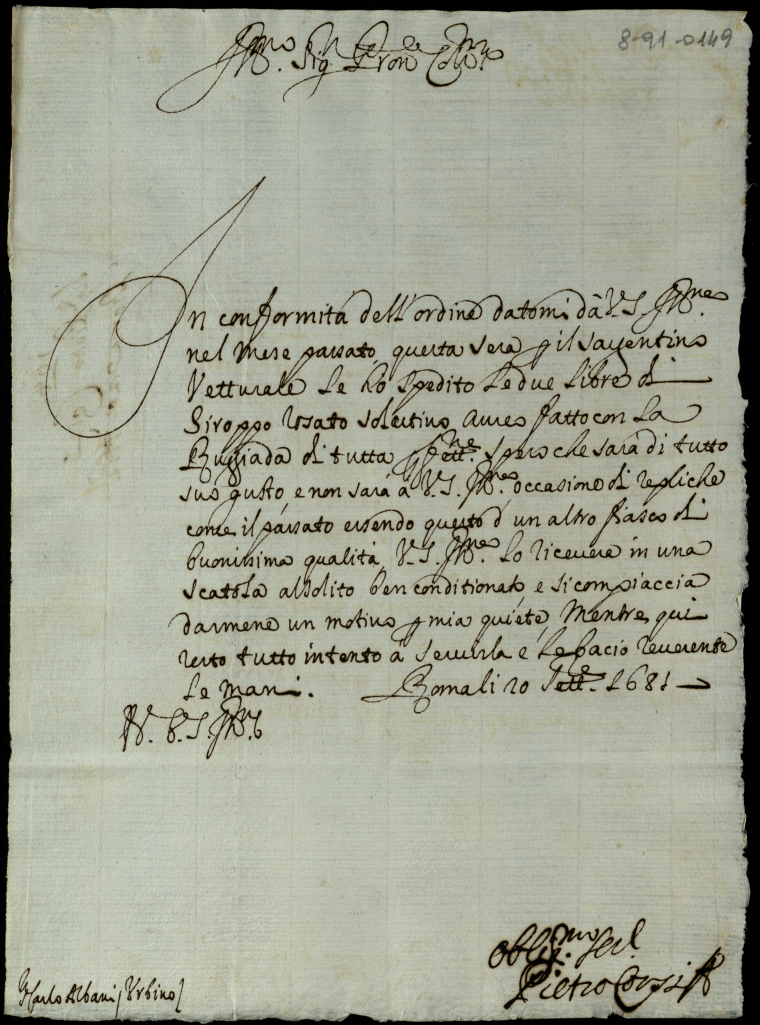 8-91-0149
Ill.mo Sig.r Pron Col.mo
In conformità dell'ordine datomi dà V.S. Ill.ma
nel Mese passato questa sera p il sarentino
Vetturale Le hò spedito Le due Libre di
Siroppo Rosato solutivo Aureo fatto con La
Rugiada di tutta Sett.re spero che sarà di tutto
suo gusto, e non sarà à V.S. Ill.ma occasione di repliche
come il passato essendo questo d'un altro fiasco di
buonissima qualità V.S. Ill.ma Lo ricevere in una
scatola al solito ben conditionato e si compiaccia
darmene un motivo p mia quiete, Mentre qui
resto tutto intento à servirla e Le bacio reverente
Le mani. Roma li 20 Sett.e 1681
V.S. Ill.ma
Oblig.mo Ser.
Pietro Corsi
Carlo Albani (Urbino)